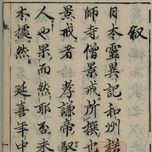 叙
日本靈異記和州藥
師寺僧景戒所撰也
景戒者孝謙帝駁
人也果而然耶否未
據然延喜年中